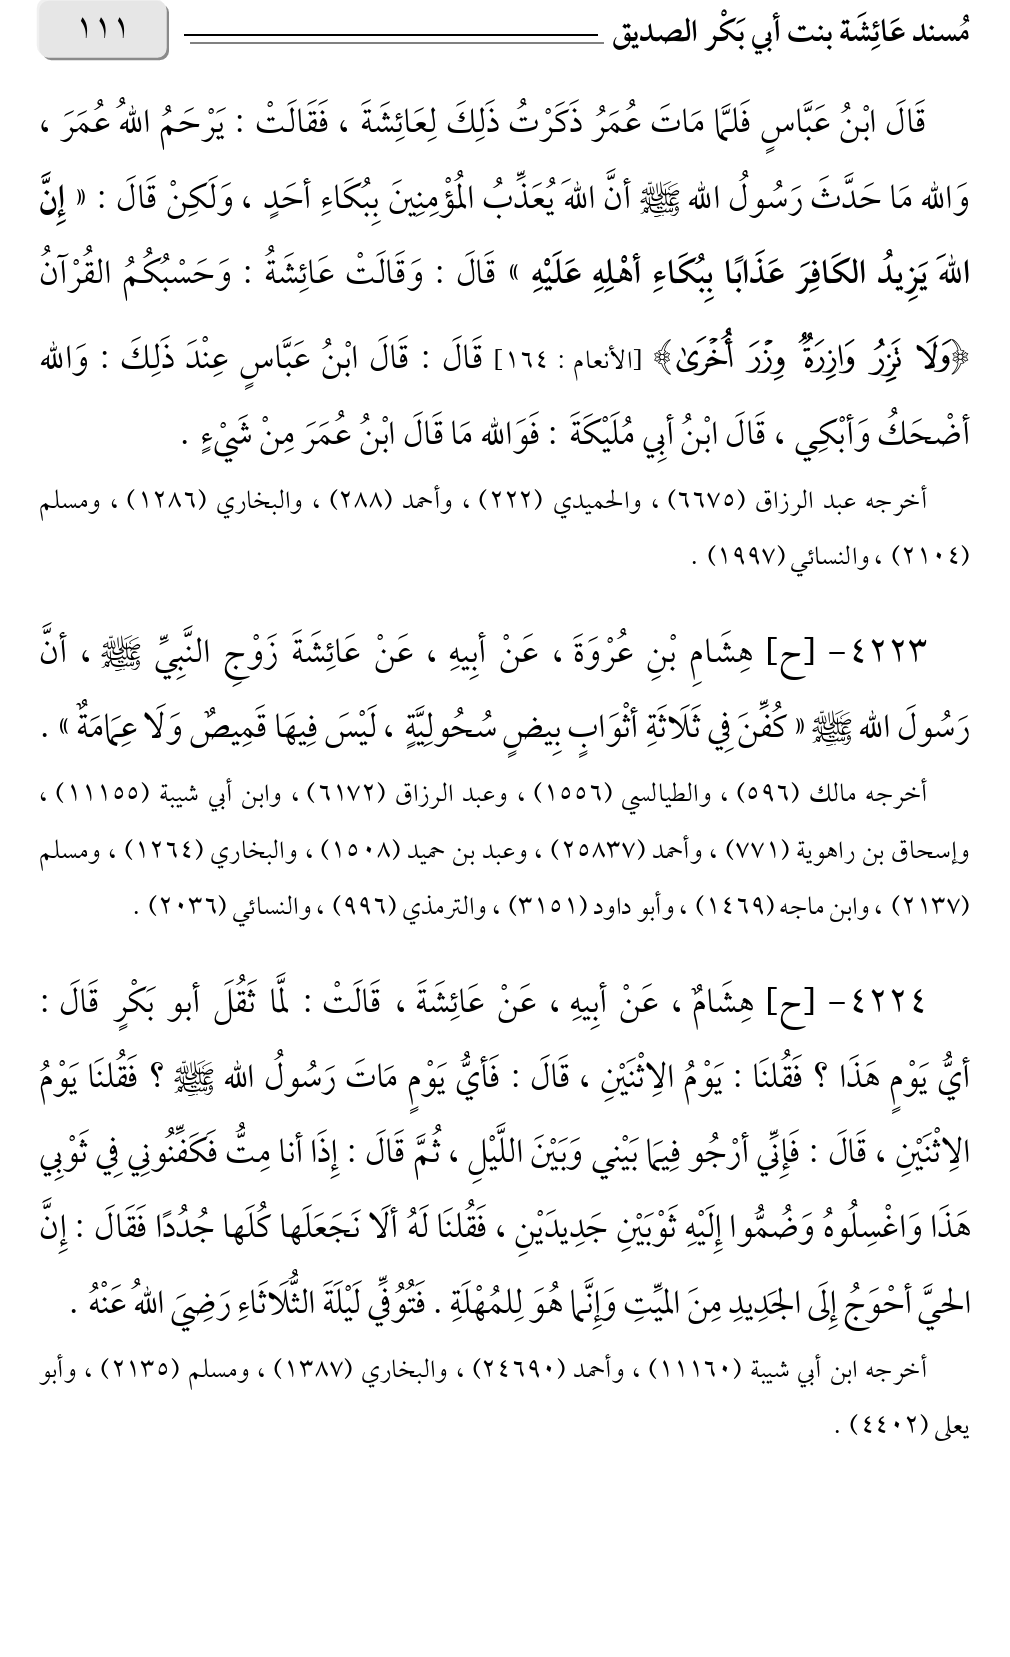 مُسند عَائِشَة بنت أبي بَكْر الصديق
١١١
قَالَ ابْنُ عَبَّاسٍ فَلمَّا مَاتَ عُمَرُ ذَكَرْتُ ذَلِكَ لِعَائِشَةَ ، فَقَالَتْ : يَرْحَمُ اللهُ عُمَرَ ،
وَالله مَا حَدَّثَ رَسُولُ الله ﷺ أنَّ اللهَ يُعَذِّبُ المُؤْمِنِينَ بِبُكَاءِ أحَدٍ ، وَلَكِنْ قَالَ : « إِنَّ
اللهَ يَزِيدُ الكَافِرَ عَذَابًا بِبُكَاءِ أهْلِهِ عَلَيْهِ » قَالَ : وَقَالَتْ عَائِشَةُ : وَحَسْبُكُمُ القُرْآنُ
﴿وَلَا تَزِرُ وَازِرَةٌ وِزْرَ أُخْرَىٰ﴾ [الأنعام : ١٦٤] قَالَ : قَالَ ابْنُ عَبَّاسٍ عِنْدَ ذَلِكَ : وَالله
أضْحَكُ وَأبْكِي ، قَالَ ابْنُ أبِي مُلَيْكَةَ : فَوَالله مَا قَالَ ابْنُ عُمَرَ مِنْ شَيْءٍ .
أخرجه عبد الرزاق (٦٦٧٥) ، والحميدي (٢٢٢) ، وأحمد (٢٨٨) ، والبخاري (١٢٨٦) ، ومسلم
(٢١٠٤) ، والنسائي (١٩٩٧) .
٤٢٢٣- [ح] هِشَامِ بْنِ عُرْوَةَ ، عَنْ أبِيهِ ، عَنْ عَائِشَةَ زَوْجِ النَّبِيِّ ﷺ ، أنَّ
رَسُولَ الله ﷺ « كُفِّنَ فِي ثَلَاثَةِ أثْوَابٍ بِيضٍ سُحُولِيَّةٍ ، لَيْسَ فِيهَا قَمِيصٌ وَلَا عِمَامَةٌ » .
أخرجه مالك (٥٩٦) ، والطيالسي (١٥٥٦) ، وعبد الرزاق (٦١٧٢) ، وابن أبي شيبة (١١١٥٥) ،
وإسحاق بن راهوية (٧٧١) ، وأحمد (٢٥٨٣٧) ، وعبد بن حميد (١٥٠٨) ، والبخاري (١٢٦٤) ، ومسلم
(٢١٣٧) ، وابن ماجه (١٤٦٩) ، وأبو داود (٣١٥١) ، والترمذي (٩٩٦) ، والنسائي (٢٠٣٦) .
٤٢٢٤- [ح] هِشَامٌ ، عَنْ أبِيهِ ، عَنْ عَائِشَةَ ، قَالَتْ : لمَّا ثَقُلَ أبو بَكْرٍ قَالَ :
أيُّ يَوْمٍ هَذَا ؟ فَقُلنَا : يَوْمُ الِاثْنَيْنِ ، قَالَ : فَأيُّ يَوْمٍ مَاتَ رَسُولُ الله ﷺ ؟ فَقُلنَا يَوْمُ
الِاثْنَيْنِ ، قَالَ : فَإِنِّي أرْجُو فِيمَا بَيْني وَبَيْنَ اللَّيْلِ ، ثُمَّ قَالَ : إِذَا أنا مِتُّ فَكَفِّنُوني فِي ثَوْبِي
هَذَا وَاغْسِلُوهُ وَضُمُّوا إِلَيْهِ ثَوْبَيْنِ جَدِيدَيْنِ ، فَقُلنَا لَهُ ألَا نَجَعَلَها كُلَها جُدُدًا فَقَالَ : إِنَّ
الحيَّ أحْوَجُ إِلَى الجَدِيدِ مِنَ الميِّتِ وَإِنَّما هُوَ لِلمُهْلَةِ . فَتُوُفِّي لَيْلَةَ الثُّلَاثَاءِ رَضِيَ اللهُ عَنْهُ .
أخرجه ابن أبي شيبة (١١١٦٠) ، وأحمد (٢٤٦٩٠) ، والبخاري (١٣٨٧) ، ومسلم (٢١٣٥) ، وأبو
يعلى (٤٤٠٢) .